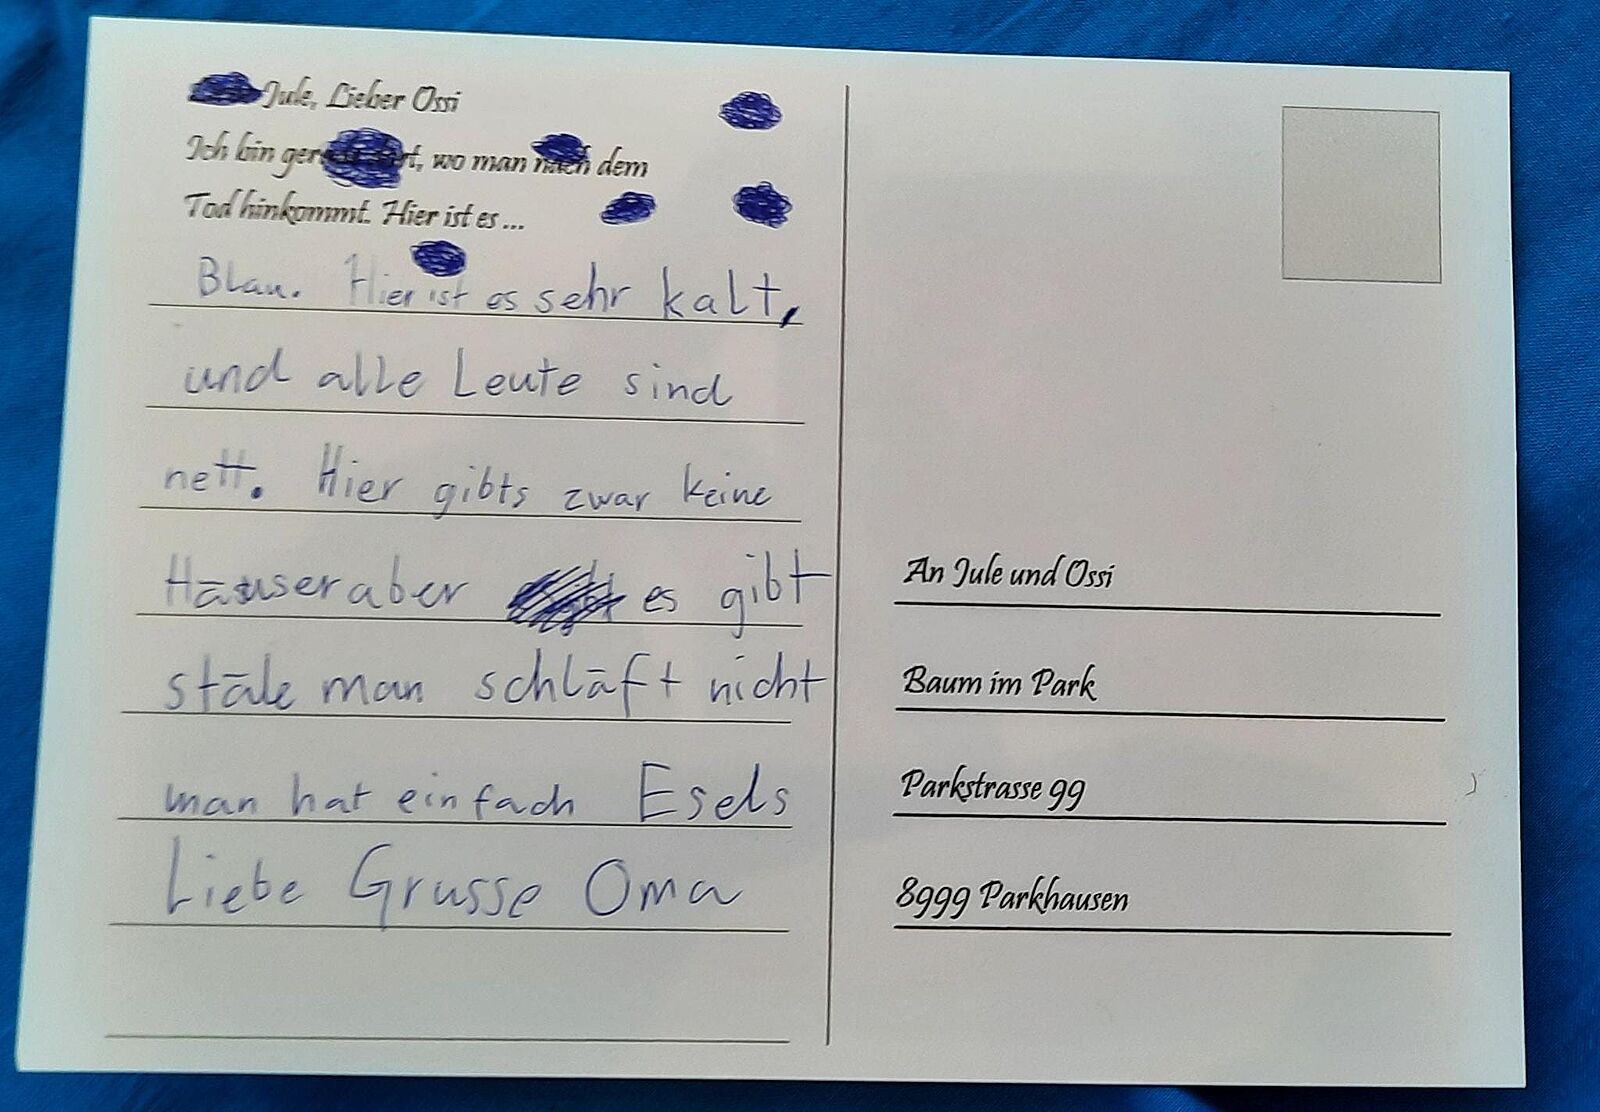 Jule, Lieber Ossi
Ich bin gerade dort, wo man nach dem
Tod hinkommt. Hier ist es ...
Blau. Hier ist es sehr kalt,
und alle Leute sind
nett. Hier gibts zwar keine
Häuser aber es gibt
stäle man schläft nicht
man hat einfach Esels
Liebe Grusse Oma
An Jule und Ossi
Baum im Park
Parkstrasse 99
8999 Parkhausen